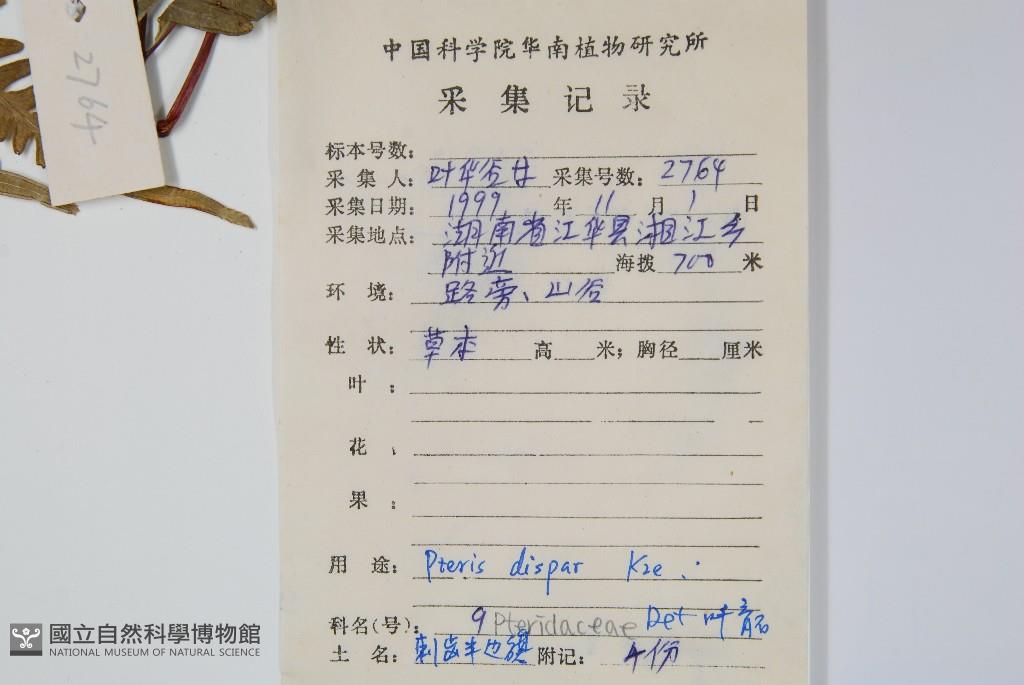 2764
中国科学院华南植物研究所
采集记录
标本号数:
采集人: 叶华谷 采集号数: 2764
采集日期: 1999 年 11 月 1 日
采集地点: 湖南省江华县湘江乡
附近 海拨 700 米
环境: 路旁、山谷
性状: 草本 高 米; 胸径 厘米
叶:
花:
果:
用途: Pteris dispar Kze.
科名(号): 9 Pteridaceae Det 叶育石
土名: 刺齿半边旗 附记: 4份
國立自然科學博物館
NATIONAL MUSEUM OF NATURAL SCIENCE